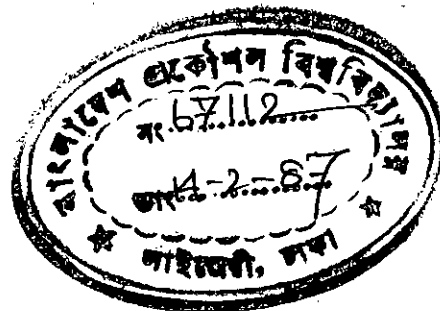 বাংলাদেশ প্রকৌশল বিশ্ববিদ্যালয়
নং 67112
তাং 14-2-87
লাইব্রেরী, ঢাকা